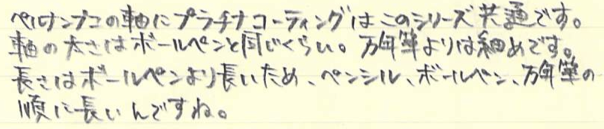 ペルナンブコの軸にプラチナコーティングはこのシリーズ共通です。
軸の太さはボールペンと同じくらい。万年筆よりは細めです。
長さはボールペンより長いため、ペンシル、ボールペン、万年筆の
順に長いんですね。